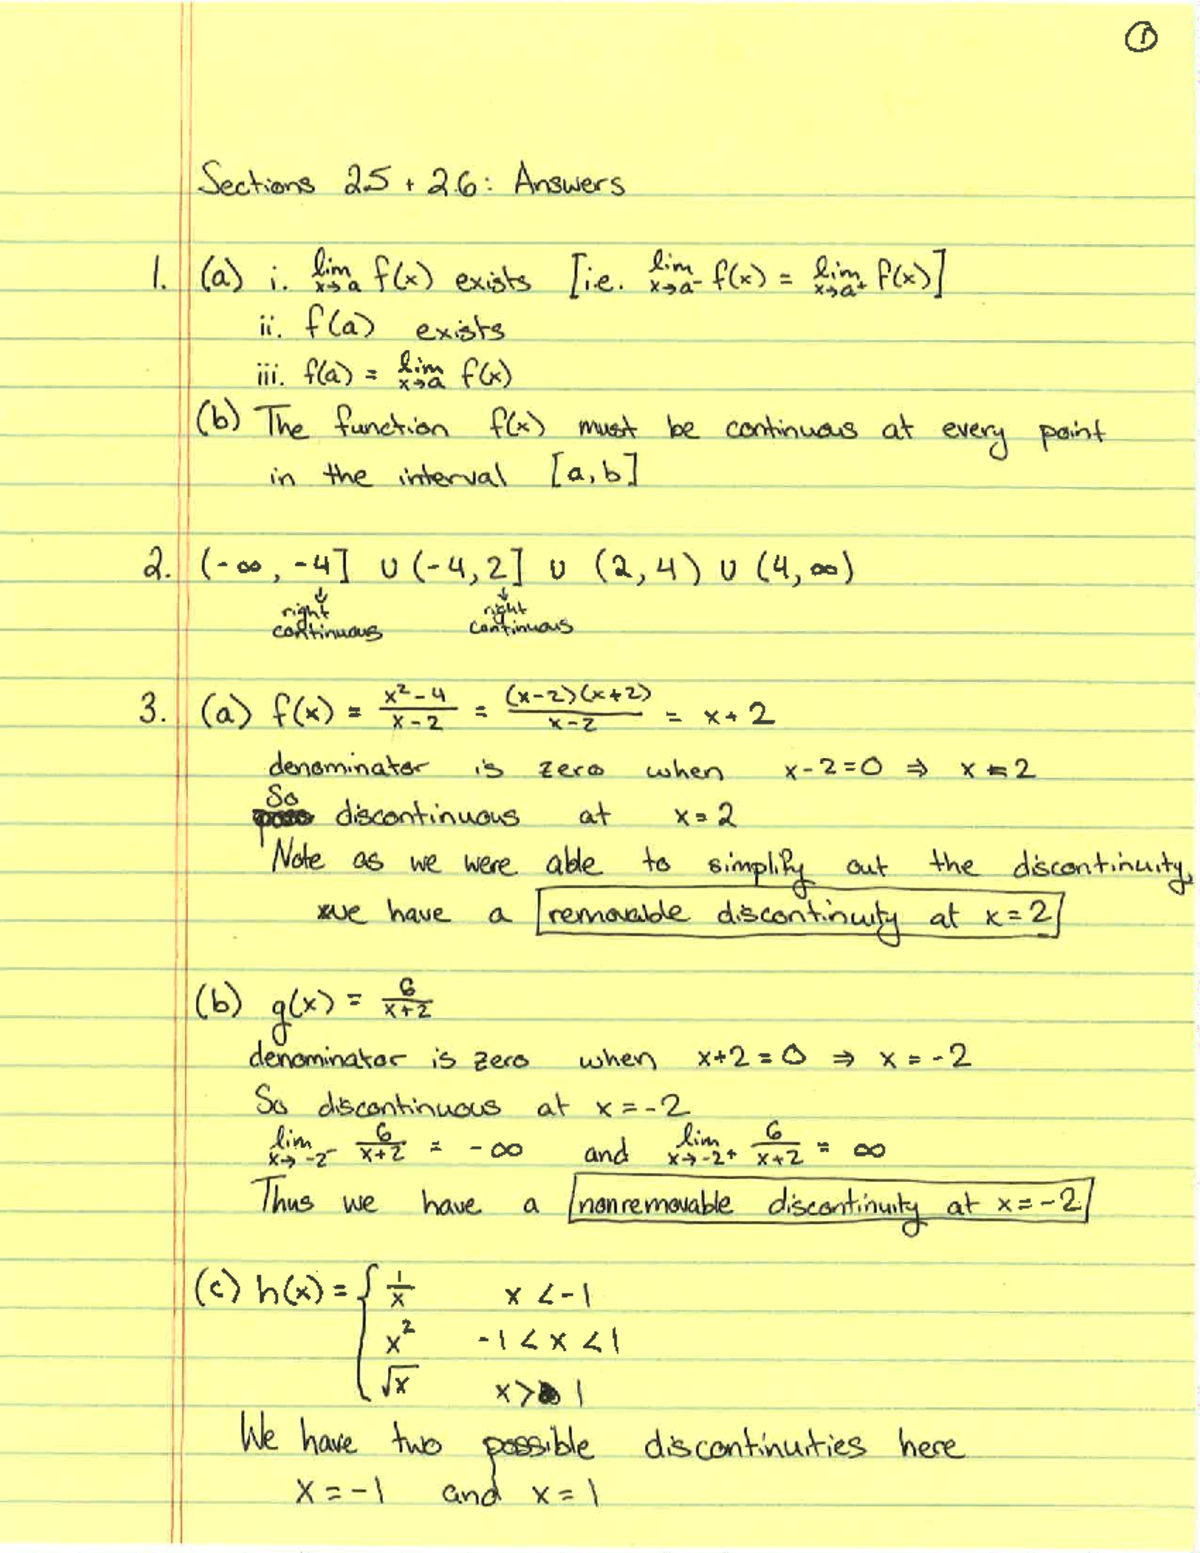 ①
Sections 2.5 + 2.6: Answers
1. (a) i. lim x→a f(x) exists [i.e. lim x→a⁻ f(x) = lim x→a⁺ f(x)]
ii. f(a) exists
iii. f(a) = lim x→a f(x)
(b) The function f(x) must be continuous at every point
in the interval [a, b]
2. (-∞, -4] ∪ (-4, 2] ∪ (2, 4) ∪ (4, ∞)
↓ right continuous ↓ right continuous
3. (a) f(x) = x²-4 / x-2 = (x-2)(x+2) / x-2 = x+2
denominator is zero when x-2=0 ⇒ x=2
So discontinuous at x=2
Note as we were able to simplify out the discontinuity,
we have a removable discontinuity at x=2
(b) g(x) = 6 / x+2
denominator is zero when x+2=0 ⇒ x=-2
So discontinuous at x=-2
lim x→-2⁻ 6 / x+2 = -∞ and lim x→-2⁺ 6 / x+2 = ∞
Thus we have a nonremovable discontinuity at x=-2
(c) h(x) = { 1/x x < -1
x² -1 < x < 1
√x x > 1
We have two possible discontinuities here
x=-1 and x=1